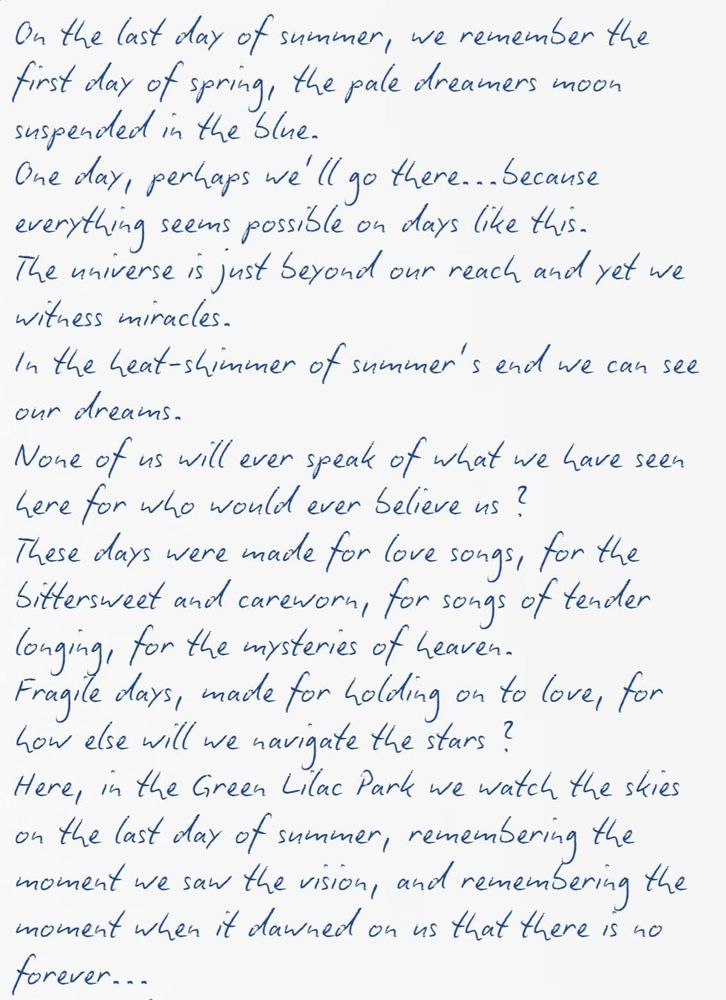 On the last day of summer, we remember the
first day of spring, the pale dreamers moon
suspended in the blue.
One day, perhaps we'll go there...because
everything seems possible on days like this.
The universe is just beyond our reach and yet we
witness miracles.
In the heat-shimmer of summer's end we can see
our dreams.
None of us will ever speak of what we have seen
here for who would ever believe us ?
These days were made for love songs, for the
bittersweet and careworn, for songs of tender
longing, for the mysteries of heaven.
Fragile days, made for holding on to love, for
how else will we navigate the stars ?
Here, in the Green Lilac Park we watch the skies
on the last day of summer, remembering the
moment we saw the vision, and remembering the
moment when it dawned on us that there is no
forever...